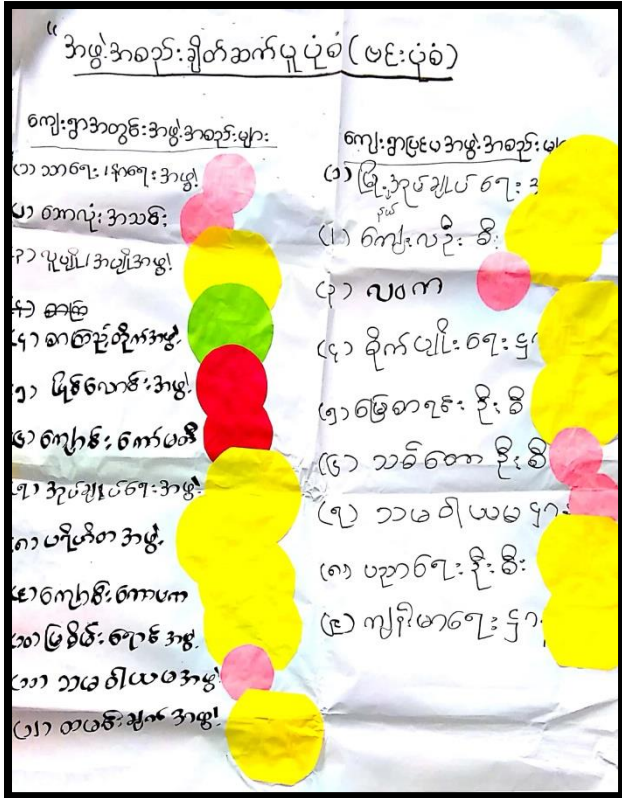 “အဖွဲ့အစည်းချိတ်ဆက်ပူပုံစံ (ဗင်းပုံစံ)
ကျေးရွာအတွင်းအဖွဲ့အစည်းများ
(၁) သာရေး၊နာရေးအဖွဲ့
(၂) သောလုံးအသင်း
(၃) လူပျို၊အပျိုအဖွဲ့
(၄) စာကြ
(၄) စာကြည့်တိုက်အဖွဲ့
(၅) မြစ်လောင်းအဖွဲ့
(၆) ကျောင်းကော်မတီ
(၇) အုပ်ချုပ်ရေးအဖွဲ့
(၈) ပရိဟိတအဖွဲ့
(၉) ကျောင်းကောပက
(၁၀) မြစိမ်းရောင်အဖွဲ့
(၁၁) သမဝါယမအဖွဲ့
(၁၂) ထမင်းချက်အဖွဲ့
ကျေးရွာပြင်ပအဖွဲ့အစည်းများ
(၁) မြို့နယ်အုပ်ချုပ်ရေး အ
(၂) ကျေးလဦးစီး
(၃) လဝက
(၄) စိုက်ပျိုးရေးဌာ
(၅) မြေစာရင်းဦးစီ
(၆) သစ်တောဦးစီ
(၇) သမဝါယမဌာန
(၈) ပညာရေးဦးစီး
(၉) ကျန်းမာရေးဌာ